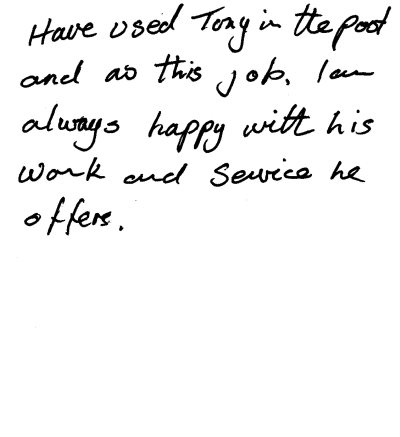 Have used Tony in the past
and as this job. I am
always happy with his
work and service he
offers.